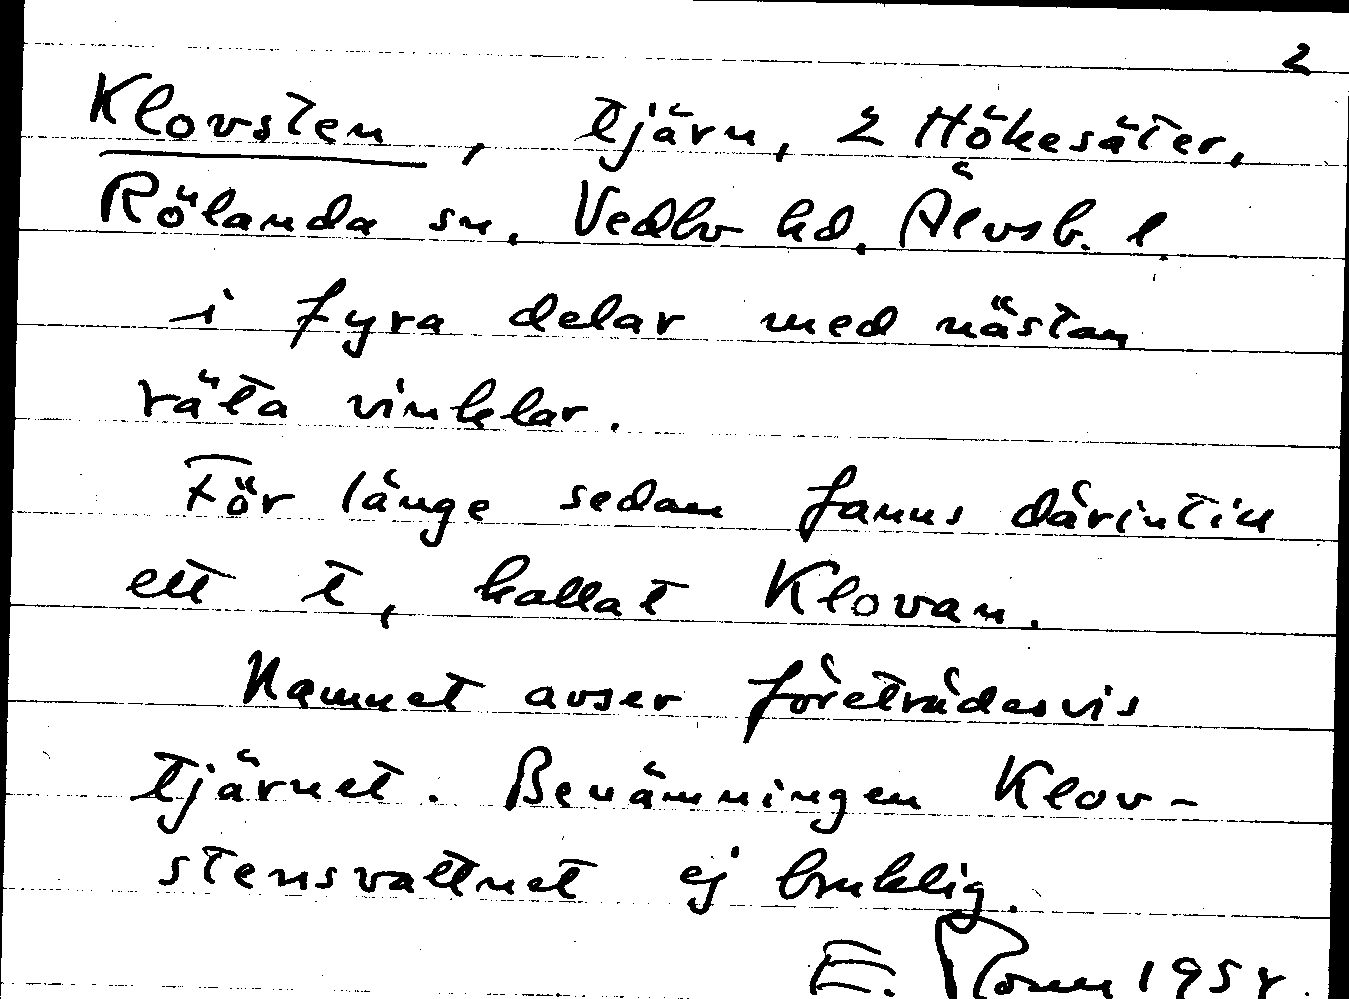 2
Klovsten, tjärn, 2 Hökesäter,
Rölanda sn. Vedbo hd. Älvsb. l.
i fyra delar med nästan
räta vinklar.
För länge sedan fanns därintill
ett t, kallat Klovan.
Namnet avser företrädesvis
tjärnet. Benämningen Klov-
stensvattnet ej bruklig.
E. 195